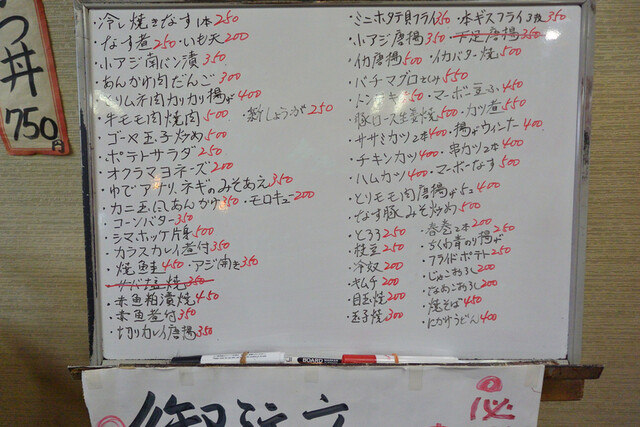 つ丼
750円
・冷し焼きなす1本250
・なす煮250・いも天200
・小アジ南バン漬350
・あんかけ肉だんご300
・とりムネ肉カリカリ揚げ400
・牛モモ肉焼肉500 ・新しょうが250
・ゴーヤ玉子炒め500
・ポテトサラダ250
・オクラマヨネーズ200
・ゆでアサリ、ネギのみそあえ350
・カニ玉風あんかけ350・モロキュー200
・コーンバター350
・シマホッケ片身500
・カラスカレイ煮付350
・焼鮭450・アジ開き350
・サバ塩焼350
・赤魚粕漬焼450
・赤魚煮付350
・切りカレイ唐揚350
・ミニホタテ貝フライ350・本ギスフライ3枚350
・小アジ唐揚350・下足唐揚350
・イカ唐揚500・イカバター焼500
・バチマグロさしみ550
・マーボー豆ふ450
・豚ロース生姜焼500・カツ煮550
・ササミカツ2本400・揚げウィンナー400
・チキンカツ400・串カツ2本400
・ハムカツ400・マーボーなす500
・とりモモ肉唐揚げ5コ400
・なす豚みそ炒め500
・とろろ250
・枝豆250
・冷奴200
・キムチ200
・目玉焼200
・玉子焼300
・春巻2本200
・ちくわ青のり揚げ250
・フライドポテト250
・じゃこおろし200
・なめこおろし200
・焼そば450
・にかけうどん400
BOARD
御注文
必